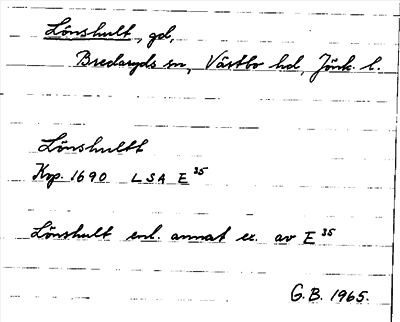 Lönshult, gd,
Bredaryds sn, Västbo hd, Jönk. l.
Lönshultt
Kop. 1690 LSA E 35
Lönshult enl. annat ex. av E 35
G.B. 1965.